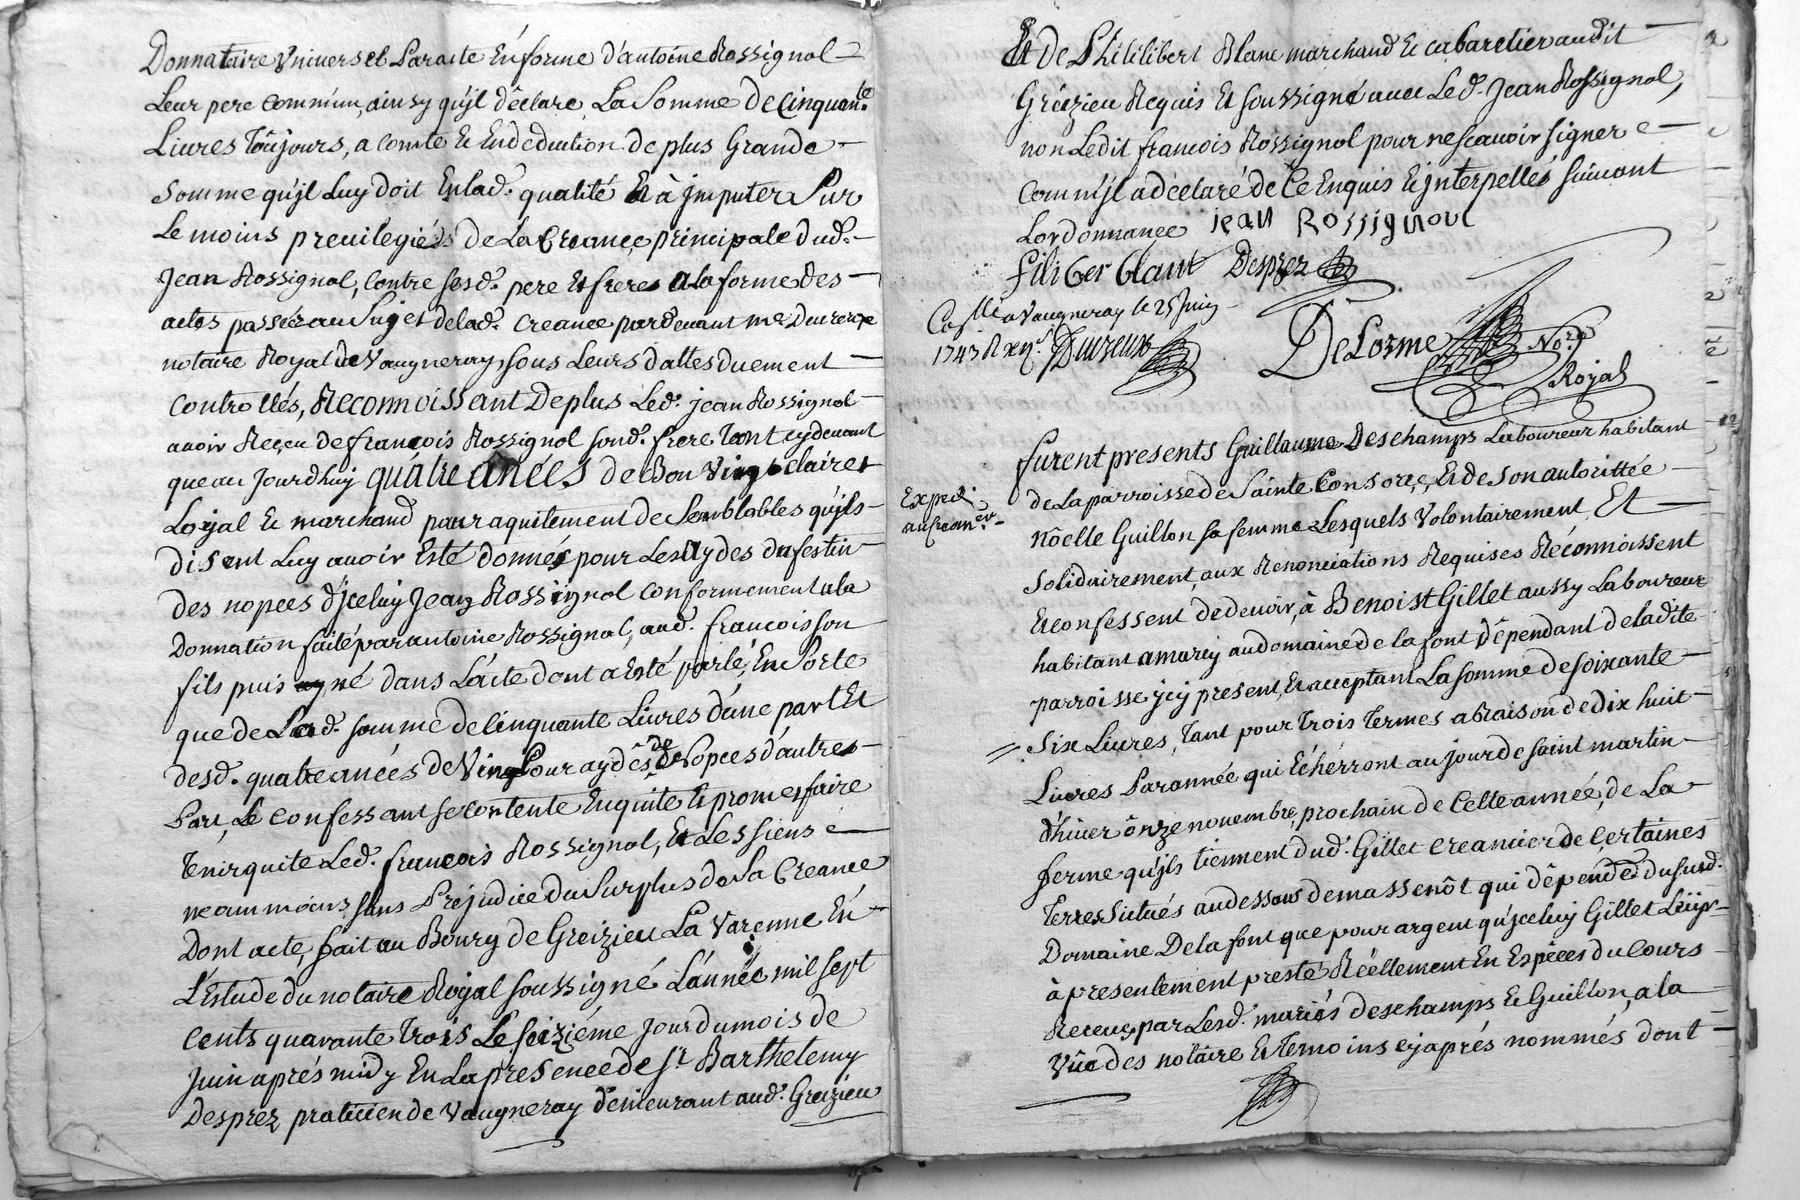 Donnataire Vniversel Paracte En forme d'antoine Rossignol
Leur pere commun, ainsy qu'jl déclare La Somme De Cinquante
Livres Toûjours, a comte Et En deduction de plus Grande
Somme qu'jl Luy doit En lad. qualité Et à jmputer Sur
Le moins previlegiés De La Creance principale dud.
Jean Rossignol, Contre sesd. pere Et freres a la forme des
actes passés au Sujet de lad. Creance pardevant me Ducreux
notaire Royal de Vaugneray, sous Leurs dattes duement
Controllés, Reconnoissant De plus Led. jean Rossignol
avoir Reçeu de francois Rossignol sond. frere Tant cydevant
que au Jourdhuy quâtre anées de Bon Vin Clairet
Loyal Et marchand pour aquitement de Semblables qu'jls
disent Luy avoir Esté donnés pour Les Aydes du festin
des nopces d'jceluy Jean Rossignol conformement a la
Donnation faite par antoine Rossignol, aud. francois son
fils puis né dans L'acte dont a Esté parlé, En Sorte
que de Lad. somme de Cinquante Livres d'une part Et
desd. quatre anées de Vin Pour aydes de Nopces d'autres
Part, Le Confessant se Contente En quitte Et promet faire
Tenir quite Led. francois Rossignol, Et Les Siens
neammoins sans Préjudice du Surplus de Sa Creance
Dont acte, fait au Bourg de Greizieu La Varenne En
L'Estude du notaire Royal soussigné L'année mil sept
Cents quarante Trois Le seiziéme Jour du mois de
Juin aprés midy En La presence de sr. Barthelemy
Desprez praticien de Vaugneray demeurant aud. Greizieu
Et De Philibert Blanc marchand Et cabaretier audit
Greizieu Requis Et soussigné avec Led. Jean Rossignol,
non Ledit francois Rossignol pour ne scavoir signer
comm'jl a déclaré de Ce Enquis Et jnterpellés suivant
Lordonnance jean Rossignoul
filiber blant Desprez
Collé a Vaugneray le 25 Juin
1743 Ducreux
De Lorme Nore
Royal
furent presents Guillaume Deschamps Laboureur habitant
Exped.
de La parroisse de Sainte Consorçe, Et de son autorittée
nôelle Guillon sa femme Lesquels Volontairement Et
Solidairement aux Renonciations Requises Réconnoissent
Et confessent de devoir, à Benoist Gillet aussy Laboureur
habitant a marcy au domaine de la font Dépendant de la dite
parroisse jcy present, Et acceptant La somme de soixante
Six Livres, Tant pour Trois Termes a Raison de dix huit
Livres Par année qui Echérront au jour de saint martin
d'hiver ônze novembre, prochain de Celle année, de La
ferme qu'jls tiennent dud. Gillet creancier de Certaines
Terres Situés au dessous de massenôt qui dépendent du susd.
Domaine De la font que pour argent qu'jceluy Gillet Leur
à presentement presté Réellement En Espêces du Cours
Receus par Lesd. mariés deschamps Et Guillon, a la
Vûe des notaire Et Temoins cy aprés nommés dont